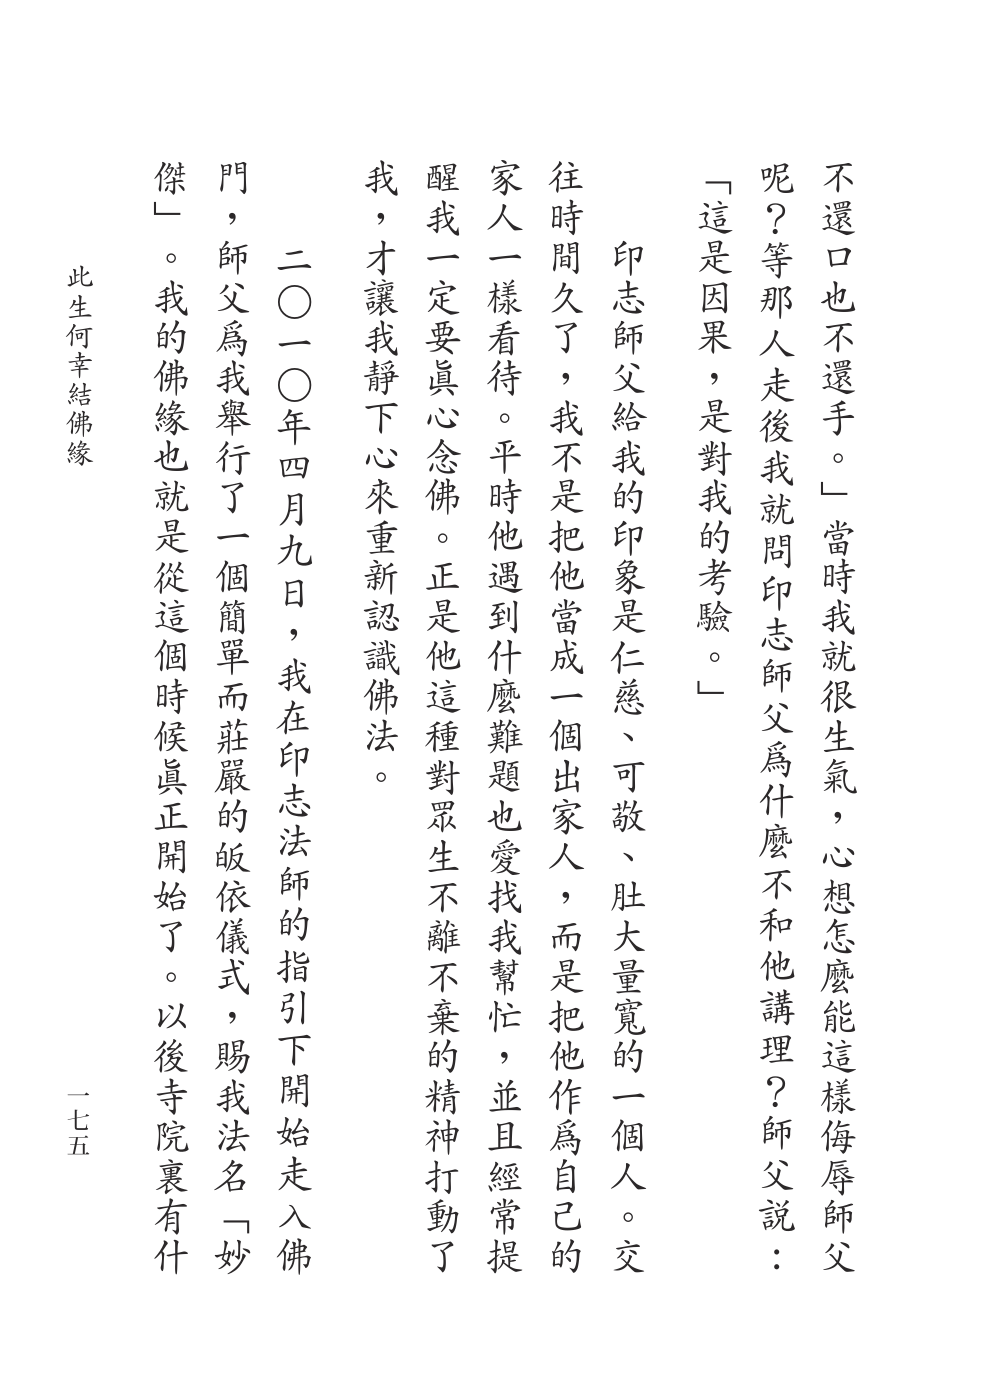 不還口也不還手。」當時我就很生氣，心想怎麼能這樣侮辱師父
呢？等那人走後我就問印志師父爲什麼不和他講理？師父説：
「這是因果，是對我的考驗。」
印志師父給我的印象是仁慈、可敬、肚大量寬的一個人。交
往時間久了，我不是把他當成一個出家人，而是把他作爲自己的
家人一樣看待。平時他遇到什麼難題也愛找我幫忙，並且經常提
醒我一定要眞心念佛。正是他這種對眾生不離不棄的精神打動了
我，才讓我靜下心來重新認識佛法。
二〇一〇年四月九日，我在印志法師的指引下開始走入佛
門，師父爲我舉行了一個簡單而莊嚴的皈依儀式，賜我法名「妙
傑」。我的佛緣也就是從這個時候眞正開始了。以後寺院裏有什
此生何幸結佛緣
一七五